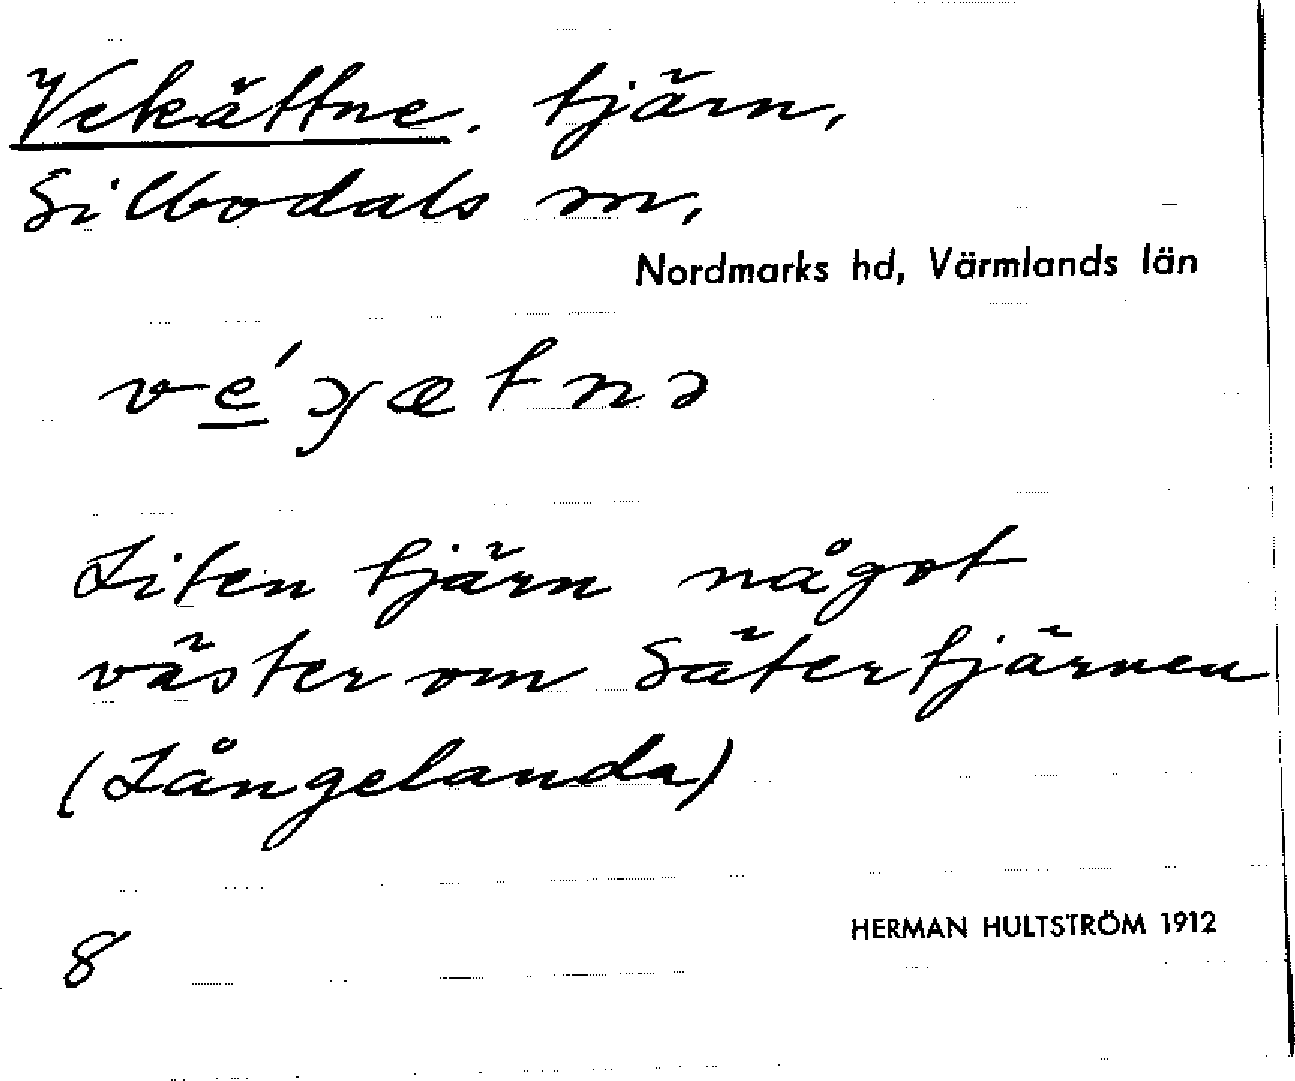 Vekättne. tjärn,
Silbodals sn,
Nordmarks hd, Värmlands län
Liten tjärn något
väster om Sätertjärnen
(Långelanda)
HERMAN HULTSTRÖM 1912
8